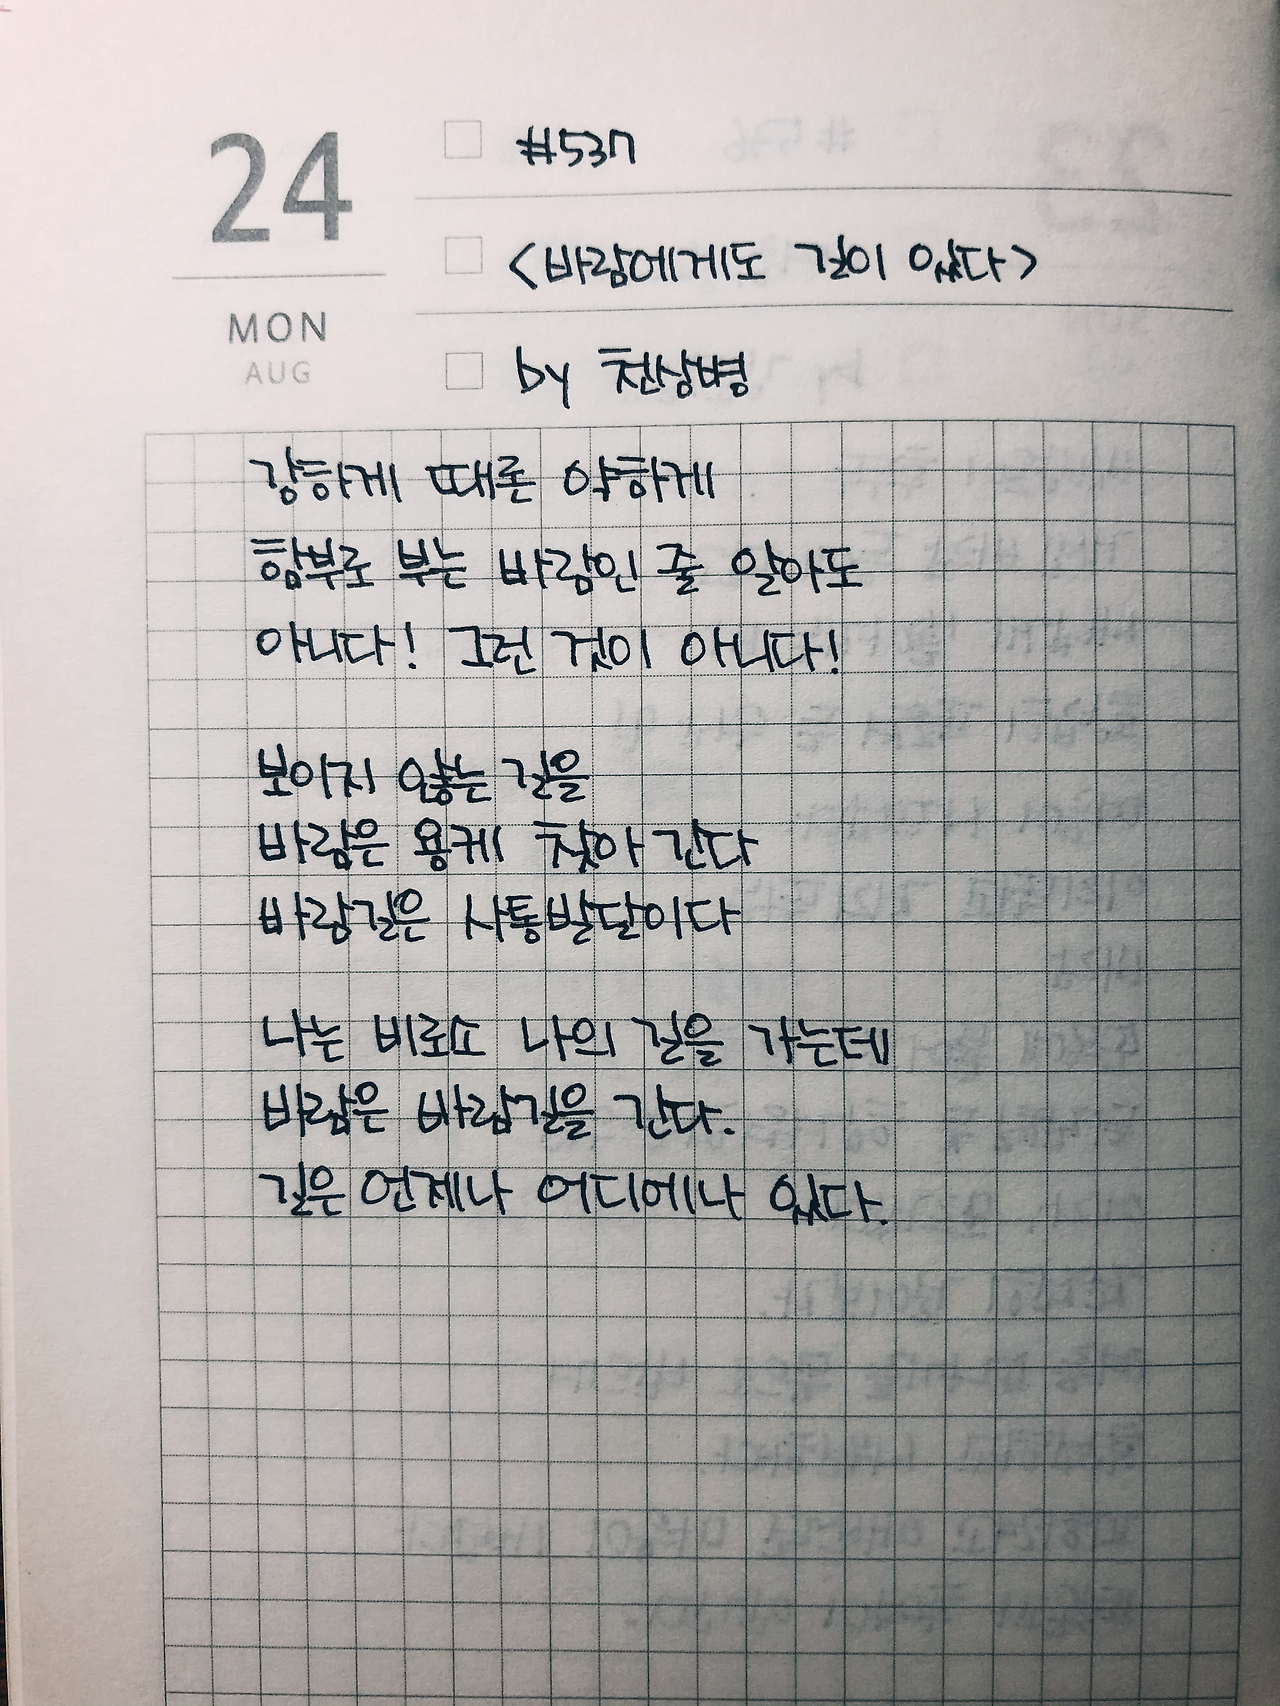 24
MON
AUG
#537
<바람에게도 길이 있다>
by 천상병
강하게 때론 약하게
함부로 부는 바람인 줄 알아도
아니다! 그런 것이 아니다!
보이지 않는 길을
바람은 용케 찾아 간다
바람길은 사통발달이다
나는 비로소 나의 길을 가는데
바람은 바람길을 간다.
길은 언제나 어디에나 있다.